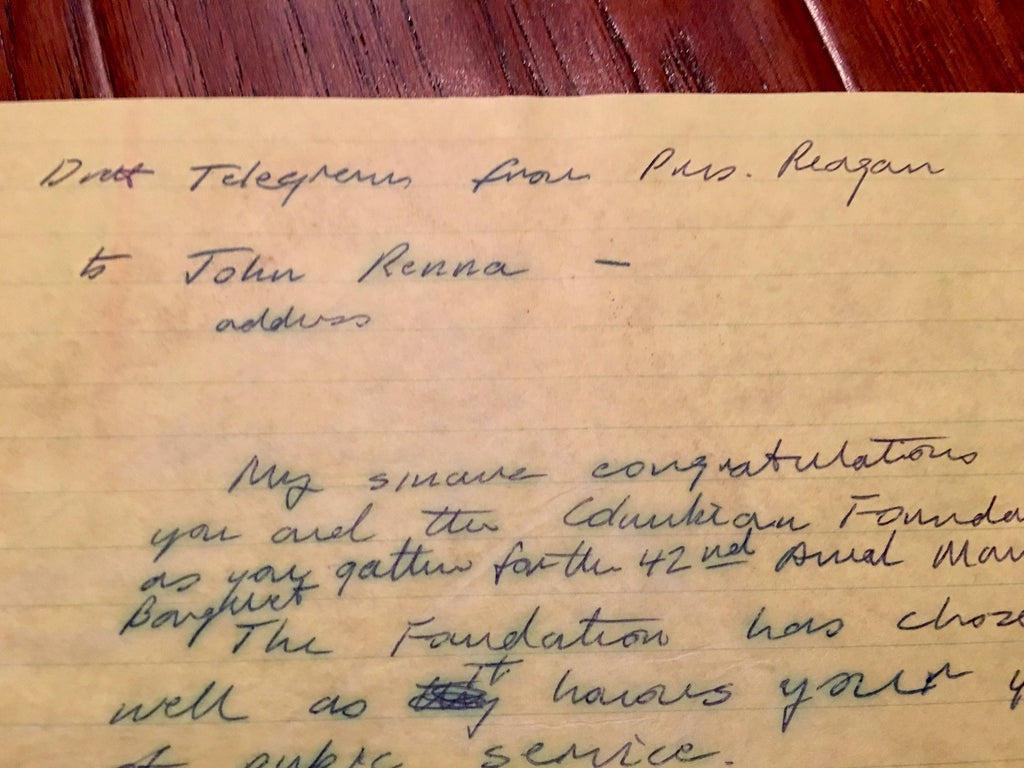 Draft Telegram from Pres. Reagan
to John Renna -
address
My sincere congratulations
you and the Columbian Founda
as you gather for the 42nd Annual
Banquet
The Foundation has chose
well as It honors your y
of public service.